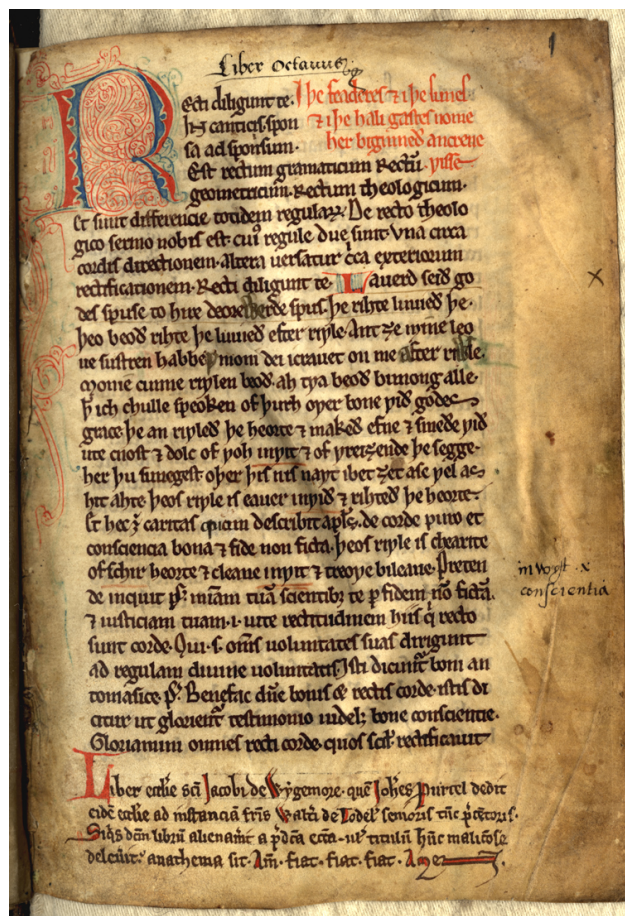 Liber Octauus
Recti diligunt te. I þe feaderes ⁊ i þe sunes
hoc est canticis spon ⁊ i þe hali gastes nome
sa ad sponsum. her biginneð ancrene
Est rectum gramaticum Rectū. ƿisse
geometricum. Rectum theologicum.
Et sunt differencie totidem regularꝝ. De recto theolo
gico sermo nobis est cuiꝰ regule due sunt. Vna circa
cordis directionem. Altera versatur circa exteriorum
rectificationem. Recti diligunt te. Lauerd seið go
des spuse to hire deore
þe rihte luuieð þe.
þeo beoð rihte þe luuieð efter riƿle. Ant ȝe mine leo
ue sustren habbeð moni dei icrauet on me after riƿle.
Monie cunne riƿlen beoð. ah tƿa beoð bimong alle.
ꝥ ich chulle speoken of þurch oƿer bone ƿið godes
grace. þe an riƿleð þe heorte ⁊ makeð efne ⁊ smeðe ƿið
ute cnost ⁊ dolc of ƿoh inƿit ⁊ of ƿreiȝende þe segge.
her þu sunegest oþer þis nis naƿt ibet ȝet ase ƿel as
hit ahte. þeos riƿle is eauer inƿið ⁊ rihteð þe heorte.
Et hec ē caritas quam describit apl̄s. de corde puro et
consciencia bona ⁊ fide non ficta. þeos riƿle is chearite
of schir heorte ⁊ cleane inƿit ⁊ treoƿe bileaue. Preten
de inquit ps. miām tuā scientibꝫ te p fidem nō fictā.
⁊ iusticiam tuam .i. uite rectitudinem hiis q̄ recto
sunt corde. Qui .s. om̄s uoluntates suas dirigunt
ad regulam diuine uoluntatis. Isti dicunt̄ boni an
tomasice. ps. Benefac dn̄e bonis & rectis corde. istis di
citur ut glorient̄ testimonio uidelꝫ bone consciencie.
Gloriamini omnes recti corde. quos scil. rectificauit
Liber eccl̄ie sc̄i Jacobi de Wygemore. quē Joh̄es Purcel dedit
eidē eccl̄ie ad instanciā fr̄is Walt̄i de Lodel senioris tūc p̄centoris.
Siq̄s dc̄m librū alienauit a p̄dc̄a eccl̄ia. ul̓ titulū hūc maliciose
deleuit. anathema sit. Am̄. fiat. fiat. fiat. Amen.
inwyt . x
conscientia
x